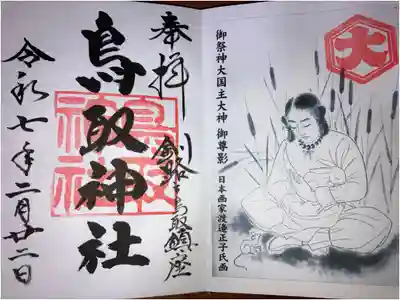 大
御祭神大国主大神 御尊影
日本画家渡邉正子氏画
奉拝
釧路
鳥取神社
鳥取神社
令和七年二月廿二日